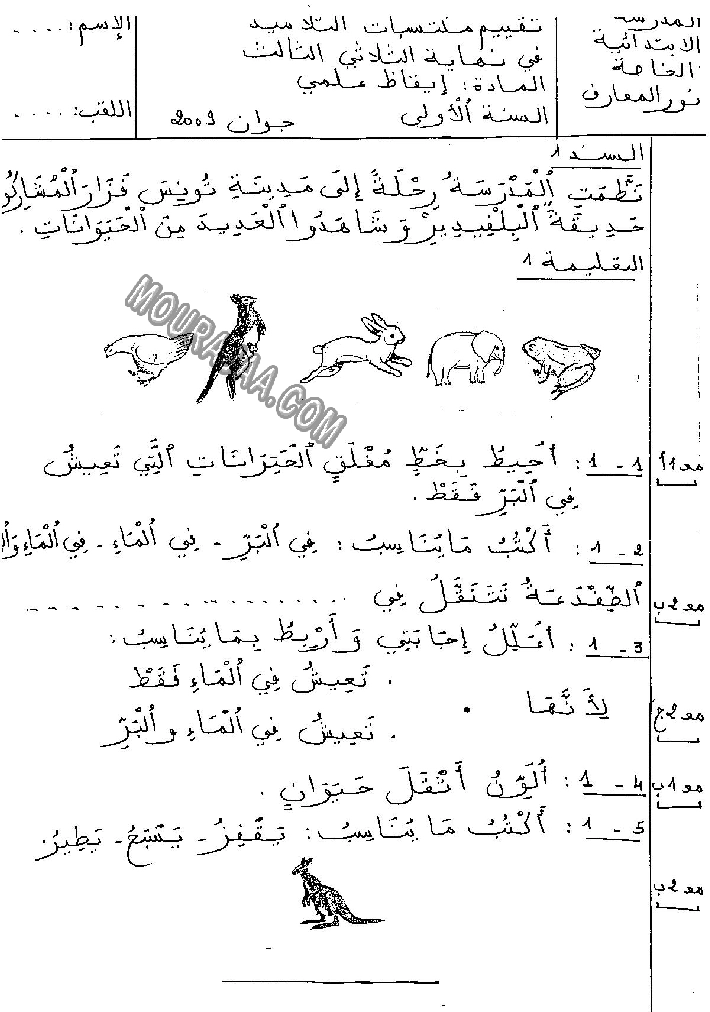 المدرسة
الابتدائية
الخاصة
نور المعارف
تقييم مكتسبات التلاميذ
في نهاية الثلاثي الثالث
المادة: إيقاظ علمي
السنة الأولى جوان 2009
الإسم: ....
اللقب: ....
السند 1
نَظَّمَتِ الْمَدْرَسَةُ رِحْلَةً إِلَى مَدِينَةِ تُونِسَ فَزَارَ الْمُشَارِكُو
حَدِيقَةَ الْبِلْفِيدِيرْ وَشَاهَدُوا الْعَدِيدَ مِنَ الْحَيَوَانَاتِ.
التعليمة 1
MOURAJAA.COM
1 - 1: أُحِيطُ بِخَطٍّ مُغْلَقٍ الْحَيَوَانَاتِ الَّتِي تَعِيشُ
فِي الْبَرِّ فَقَطْ.
مع 1أ
1 - 2: أَكْتُبُ مَا يُنَاسِبُ: فِي الْبَرِّ - فِي الْمَاءِ - فِي الْمَاءِ وَالْ
الضِّفْدَعَةُ تَتَنَقَّلُ فِي ..................
مع 2ب
1 - 3: أُعَلِّلُ إِجَابَتِي وَ أَرْبِطُ بِمَا يُنَاسِبُ:
. تَعِيشُ فِي الْمَاءِ فَقَطْ
لِأَنَّهَا .
. تَعِيشُ فِي الْمَاءِ وَ الْبَرِّ
مع 2ج
1 - 4: أُلَوِّنُ أَثْقَلَ حَيَوَانٍ.
مع 1ب
1 - 5: أَكْتُبُ مَا يُنَاسِبُ: يَقْفِزُ - يَسْبَحُ - يَطِيرُ
مع 2ب